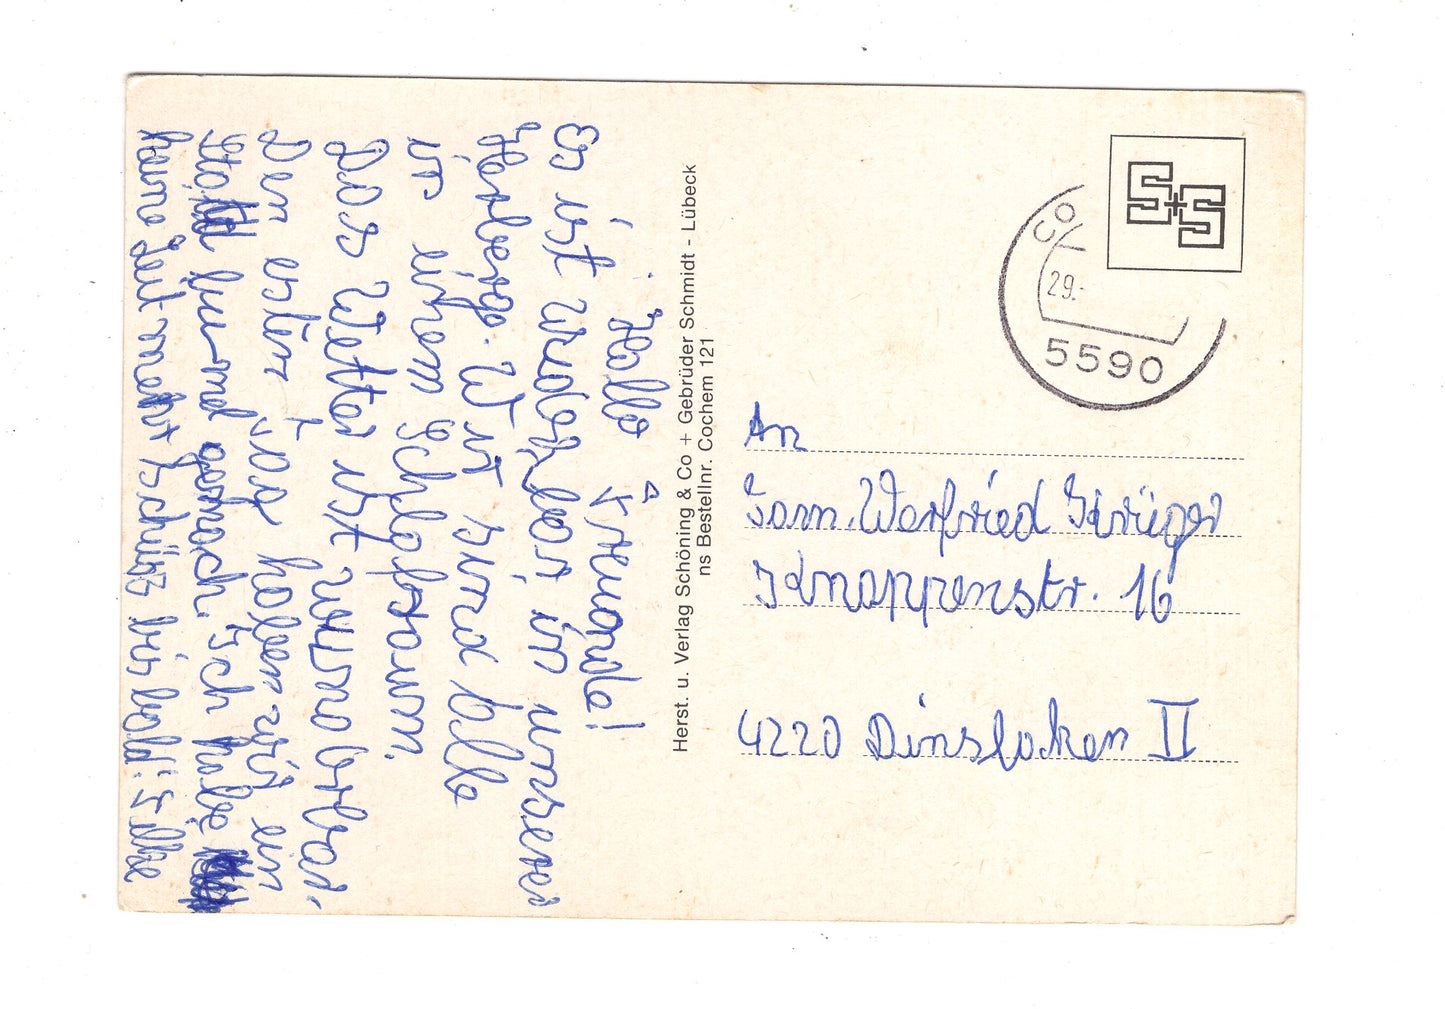 Hallo Freunde!
Es ist wunderbar, in unserer
Herberge. Wir sind alle
in einem Schlafraum.
Das Wetter ist wunderbar.
Den ersten Tag haben wir ein
Stadtbummel gemacht. Ich habe
keine Zeit mehr Tschüss bis bald: Silke
Herst. u. Verlag Schöning & Co + Gebrüder Schmidt - Lübeck
ns Bestellnr. Cochem 121
S+S
CO
29.-
5590
An
Fam. Werfried Krüger
Knappenstr. 16
4220 Dinslaken II